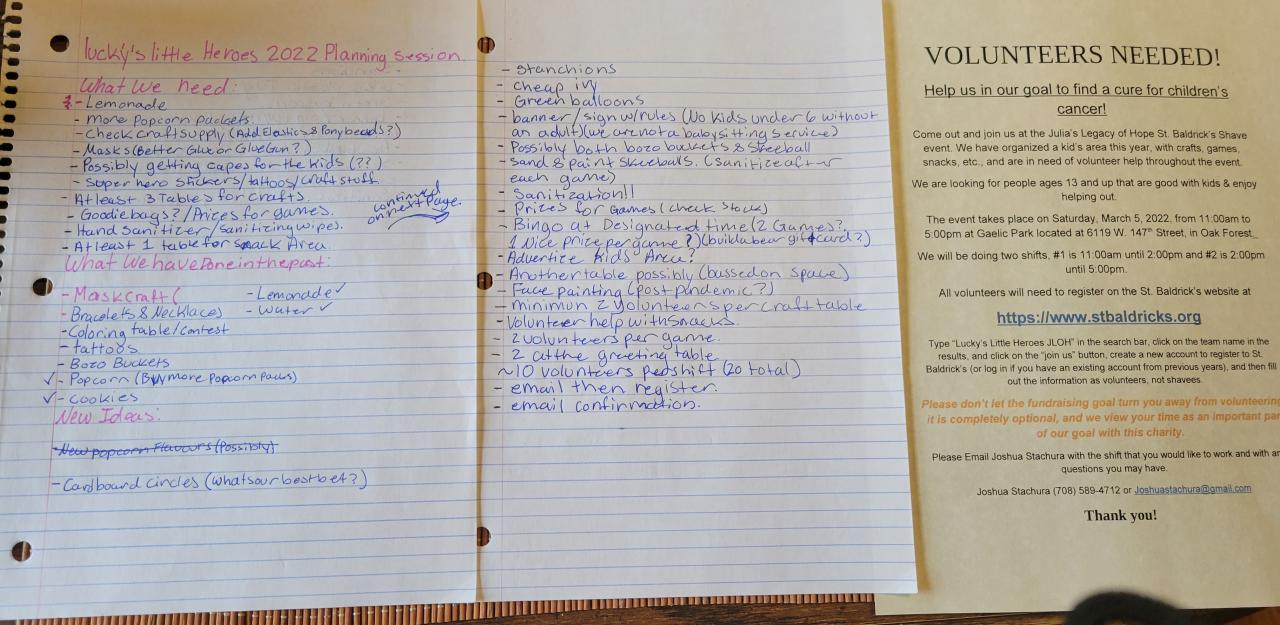 lucky's little Heroes 2022 Planning session
What we need:
- Lemonade
- more Popcorn packets.
- Check Craft Supply (Add Elastics & Ponybeads?)
- Masks (Better Glue or Glue Gun?)
- Possibly getting capes for the kids (??)
- Super hero Stickers/tattoos/craft stuff.
- Atleast 3 Tables for Crafts.
- Goodie bags?/Prizes for games.
- Hand Sanitizer/Sanitizing wipes.
- Atleast 1 table for snack Area.
continued on next Page.
What We have Done in the past:
- Mask Craft (
- Bracelets & Necklaces
- Coloring table/contest
- tattoos
- Bozo Buckets
✓ - Popcorn (Buy more Popcorn Packs)
✓ - Cookies
- Lemonade ✓
- Water ✓
New Ideas:
- New popcorn Flavours (Possibly)
- Cardboard circles (whats our best bet?)
- Stanchions
- cheap ivy
- Green balloons
- banner/sign w/rules (No kids under 6 without
an adult)(we are not a babysitting service)
- Possibly both bozo buckets & Skeeball
- Sand & paint skeeballs. (sanitize after
each game)
- Sanitization!!
- Prizes for Games (check stock)
- Bingo at Designated time (2 Games?,
1 Nice prize per game?)(build a bear gift card?)
- Advertize Kids' Area?
- Another table possibly (bassed on space)
- Face painting (post pandemic?)
- minimun 2 volunteers per craft table
- Volunteer help with snacks.
- 2 volunteers per game.
- 2 at the greeting table
~10 volunteers per shift (20 total)
- email then register.
- email confirmation.
VOLUNTEERS NEEDED!
Help us in our goal to find a cure for children's
cancer!
Come out and join us at the Julia's Legacy of Hope St. Baldrick's Shave
event. We have organized a kid's area this year, with crafts, games,
snacks, etc., and are in need of volunteer help throughout the event.
We are looking for people ages 13 and up that are good with kids & enjoy
helping out.
The event takes place on Saturday, March 5, 2022, from 11:00am to
5:00pm at Gaelic Park located at 6119 W. 147th Street, in Oak Forest.
We will be doing two shifts, #1 is 11:00am until 2:00pm and #2 is 2:00pm
until 5:00pm.
All volunteers will need to register on the St. Baldrick's website at
https://www.stbaldricks.org
Type "Lucky's Little Heroes JLOH" in the search bar, click on the team name in the
results, and click on the "join us" button, create a new account to register to St.
Baldrick's (or log in if you have an existing account from previous years), and then fill
out the information as volunteers, not shavees.
Please don't let the fundraising goal turn you away from volunteering
it is completely optional, and we view your time as an important par
of our goal with this charity.
Please Email Joshua Stachura with the shift that you would like to work and with an
questions you may have.
Joshua Stachura (708) 589-4712 or Joshuastachura@gmail.com
Thank you!